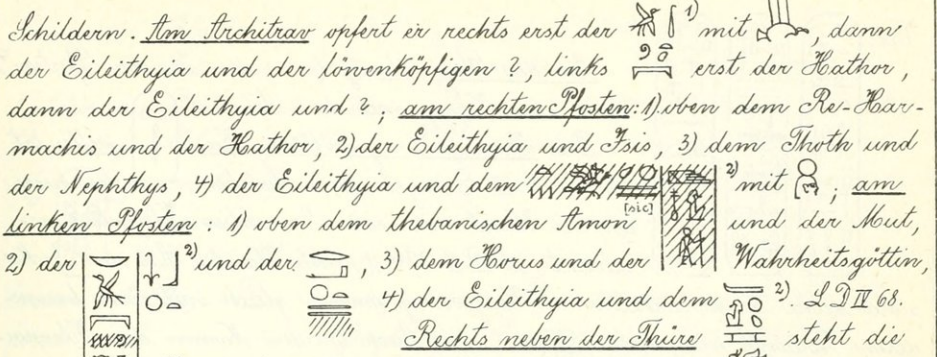 Schildern. Am Architrav opfert er rechts erst der 1) mit , dann
der Eileithyia und der löwenköpfigen ?, links erst der Hathor,
dann der Eileithyia und ? ; am rechten Pfosten: 1) oben dem Re-Har-
machis und der Hathor, 2) der Eileithyia und Isis, 3) dem Thoth und
der Nephthys, 4) der Eileithyia und dem [sic] 2) mit ; am
linken Pfosten : 1) oben dem thebanischen Amon und der Mut,
2) der 2) und der , 3) dem Horus und der Wahrheitsgöttin,
4) der Eileithyia und dem 2). L D IV 68.
Rechts neben der Thüre steht die